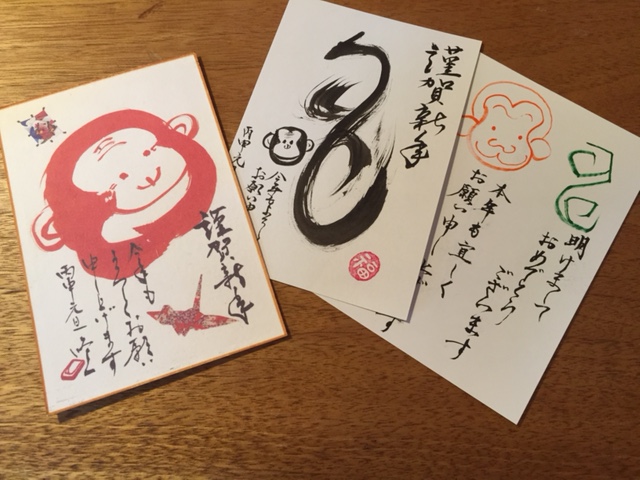 謹賀新年
今年も
よろしくお願い
申し上げます
丙申 元旦
謹賀新年
今年もよろし
お願い申
丙申 元
福
明けまして
おめでとう
ございます
本年も宜しく
お願い申し
す